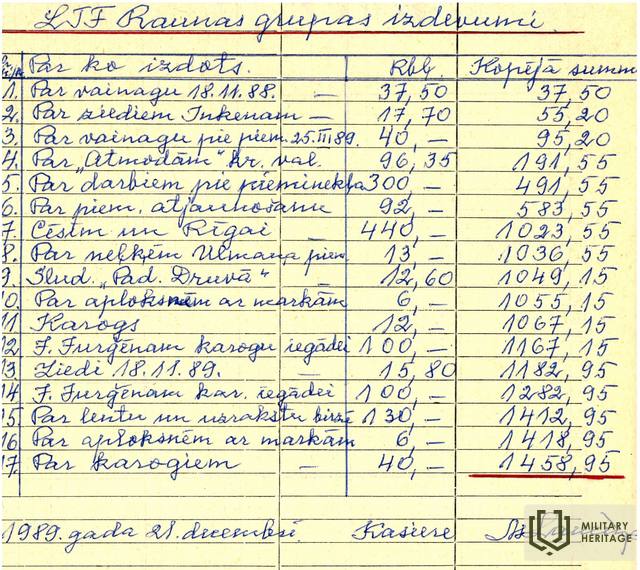 LTF Raunas grupas izdevumi.
Par ko izdots. Rbl. Kopējā summ
1. Par vainagu 18.11.88. — 37,50 37,50
2. Par ziediem Inkenam — 17,70 55,20
3. Par vainagu pie piem. 25.III 89. 40,— 95,20
4. Par „Atmodām" kr. val. 96,35 191,55
5. Par darbiem pie pieminekļa 300,— 491,55
6. Par piem. atjaunošanu 92,— 583,55
7. Cēsīm un Rīgai — 440,— 1023,55
8. Par neļķēm Ulmaņa piem. 13,— 1036,55
9. Slud. „Pad. Druvā" — 12,60 1049,15
10. Par aploksnēm ar markām 6,— 1055,15
11 Karogs 12,— 1067,15
12 J. Jurģēnam karogu iegādei 100,— 1167,15
13 Ziedi 18.11.89. — 15,80 1182,95
14 J. Jurģēnam kar. iegādei 100,— 1282,95
15 Par lentu un uzrakstu birzē 130,— 1412,95
16 Par aploksnēm ar markām 6,— 1418,95
17. Par karogiem — 40,— 1458,95
1989. gada 21. decembrī Kasiere
MILITARY
HERITAGE